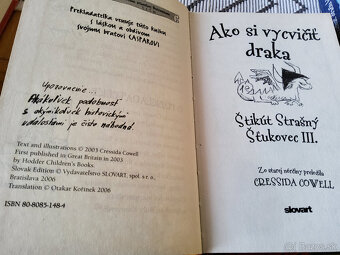 Prekladateľka venuje túto knihu
s láskou a obdivom
svojmu bratovi CASPAROVI
Upozornenie...
Akákoľvek podobnosť
s akýmikoľvek historickými
udalosťami je čisto náhodná.
Text and illustrations © 2003 Cressida Cowell
First published in Great Britain in 2003
by Hodder Children's Books.
Slovak Edition © Vydavateľstvo SLOVART, spol. s r.o.,
Bratislava 2006
Translation © Otakar Kořínek 2006
ISBN 80-8085-148-4
Ako si vycvičiť
draka
Štikút Strašný
Štukovec III.
Zo starej nórčiny preložila
CRESSIDA COWELL
slovart
bazos.sk